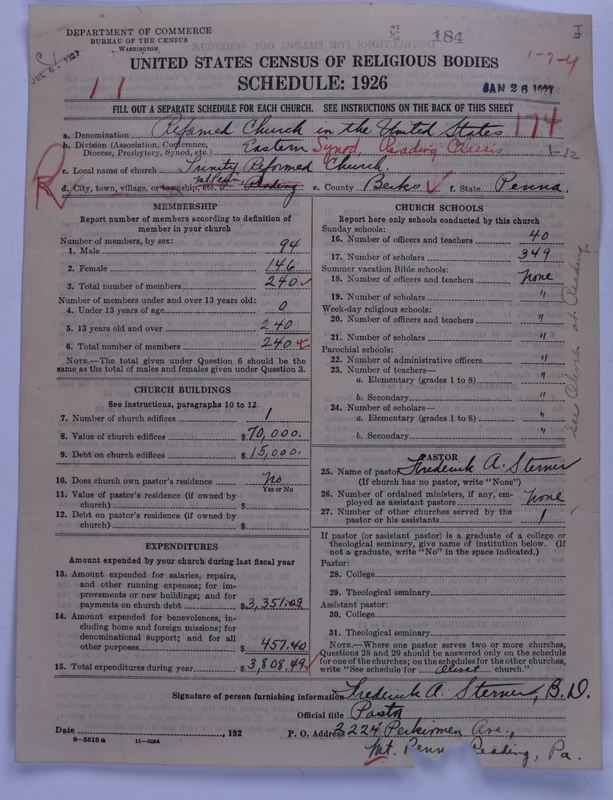 DEPARTMENT OF COMMERCE
BUREAU OF THE CENSUS
WASHINGTON
JUL 6 - 1927
184
1-7-4
UNITED STATES CENSUS OF RELIGIOUS BODIES
SCHEDULE: 1926
11
JAN 26 1927
FILL OUT A SEPARATE SCHEDULE FOR EACH CHURCH. SEE INSTRUCTIONS ON THE BACK OF THIS SHEET
174
a. Denomination Reformed Church in the United States
b. Division (Association, Conference, Diocese, Presbytery, Synod, etc.) Eastern Synod, Reading Classis 1-12
c. Local name of church Trinity Reformed Church
d. City, town, village, or township, etc. Mt. Penn Reading e. County Berks f. State Penna.
MEMBERSHIP
Report number of members according to definition of
member in your church
Number of members, by sex:
1. Male 94
2. Female 146
3. Total number of members 240
Number of members under and over 13 years old:
4. Under 13 years of age 0
5. 13 years old and over 240
6. Total number of members 240
NOTE.—The total given under Question 6 should be the
same as the total of males and females given under Question 3.
CHURCH BUILDINGS
See instructions, paragraphs 10 to 12
7. Number of church edifices 1
8. Value of church edifices $70,000.
9. Debt on church edifices $15,000.
10. Does church own pastor's residence no
Yes or No
11. Value of pastor's residence (if owned by
church) $
12. Debt on pastor's residence (if owned by
church) $
EXPENDITURES
Amount expended by your church during last fiscal year
13. Amount expended for salaries, repairs,
and other running expenses; for im-
provements or new buildings; and for
payments on church debt $3,351.09
14. Amount expended for benevolences, in-
cluding home and foreign missions; for
denominational support; and for all
other purposes $457.40
15. Total expenditures during year $3,808.49
CHURCH SCHOOLS
Report here only schools conducted by this church
Sunday schools:
16. Number of officers and teachers 40
17. Number of scholars 349
Summer vacation Bible schools:
18. Number of officers and teachers none
19. Number of scholars "
Week-day religious schools:
20. Number of officers and teachers "
21. Number of scholars "
Parochial schools:
22. Number of administrative officers "
23. Number of teachers—
a. Elementary (grades 1 to 8) "
b. Secondary "
24. Number of scholars—
a. Elementary (grades 1 to 8) "
b. Secondary "
see Olivet at Reading
PASTOR
25. Name of pastor Frederick A. Sterner
(If church has no pastor, write "None")
26. Number of ordained ministers, if any, em-
ployed as assistant pastors none
27. Number of other churches served by the
pastor or his assistants 1
If pastor (or assistant pastor) is a graduate of a college or
theological seminary, give name of institution below. (If
not a graduate, write "No" in the space indicated.)
Pastor:
28. College
29. Theological seminary
Assistant pastor:
30. College
31. Theological seminary
NOTE.—Where one pastor serves two or more churches,
Questions 28 and 29 should be answered only on the schedule
for one of the churches; on the schedules for the other churches,
write "See schedule for Olivet church."
Signature of person furnishing information Frederick A. Sterner, B.D.
Official title Pastor
Date , 192 P. O. Address 2224 Perkiomen Ave.,
8—5518a 11—9064
Mt. Penn Reading, Pa.